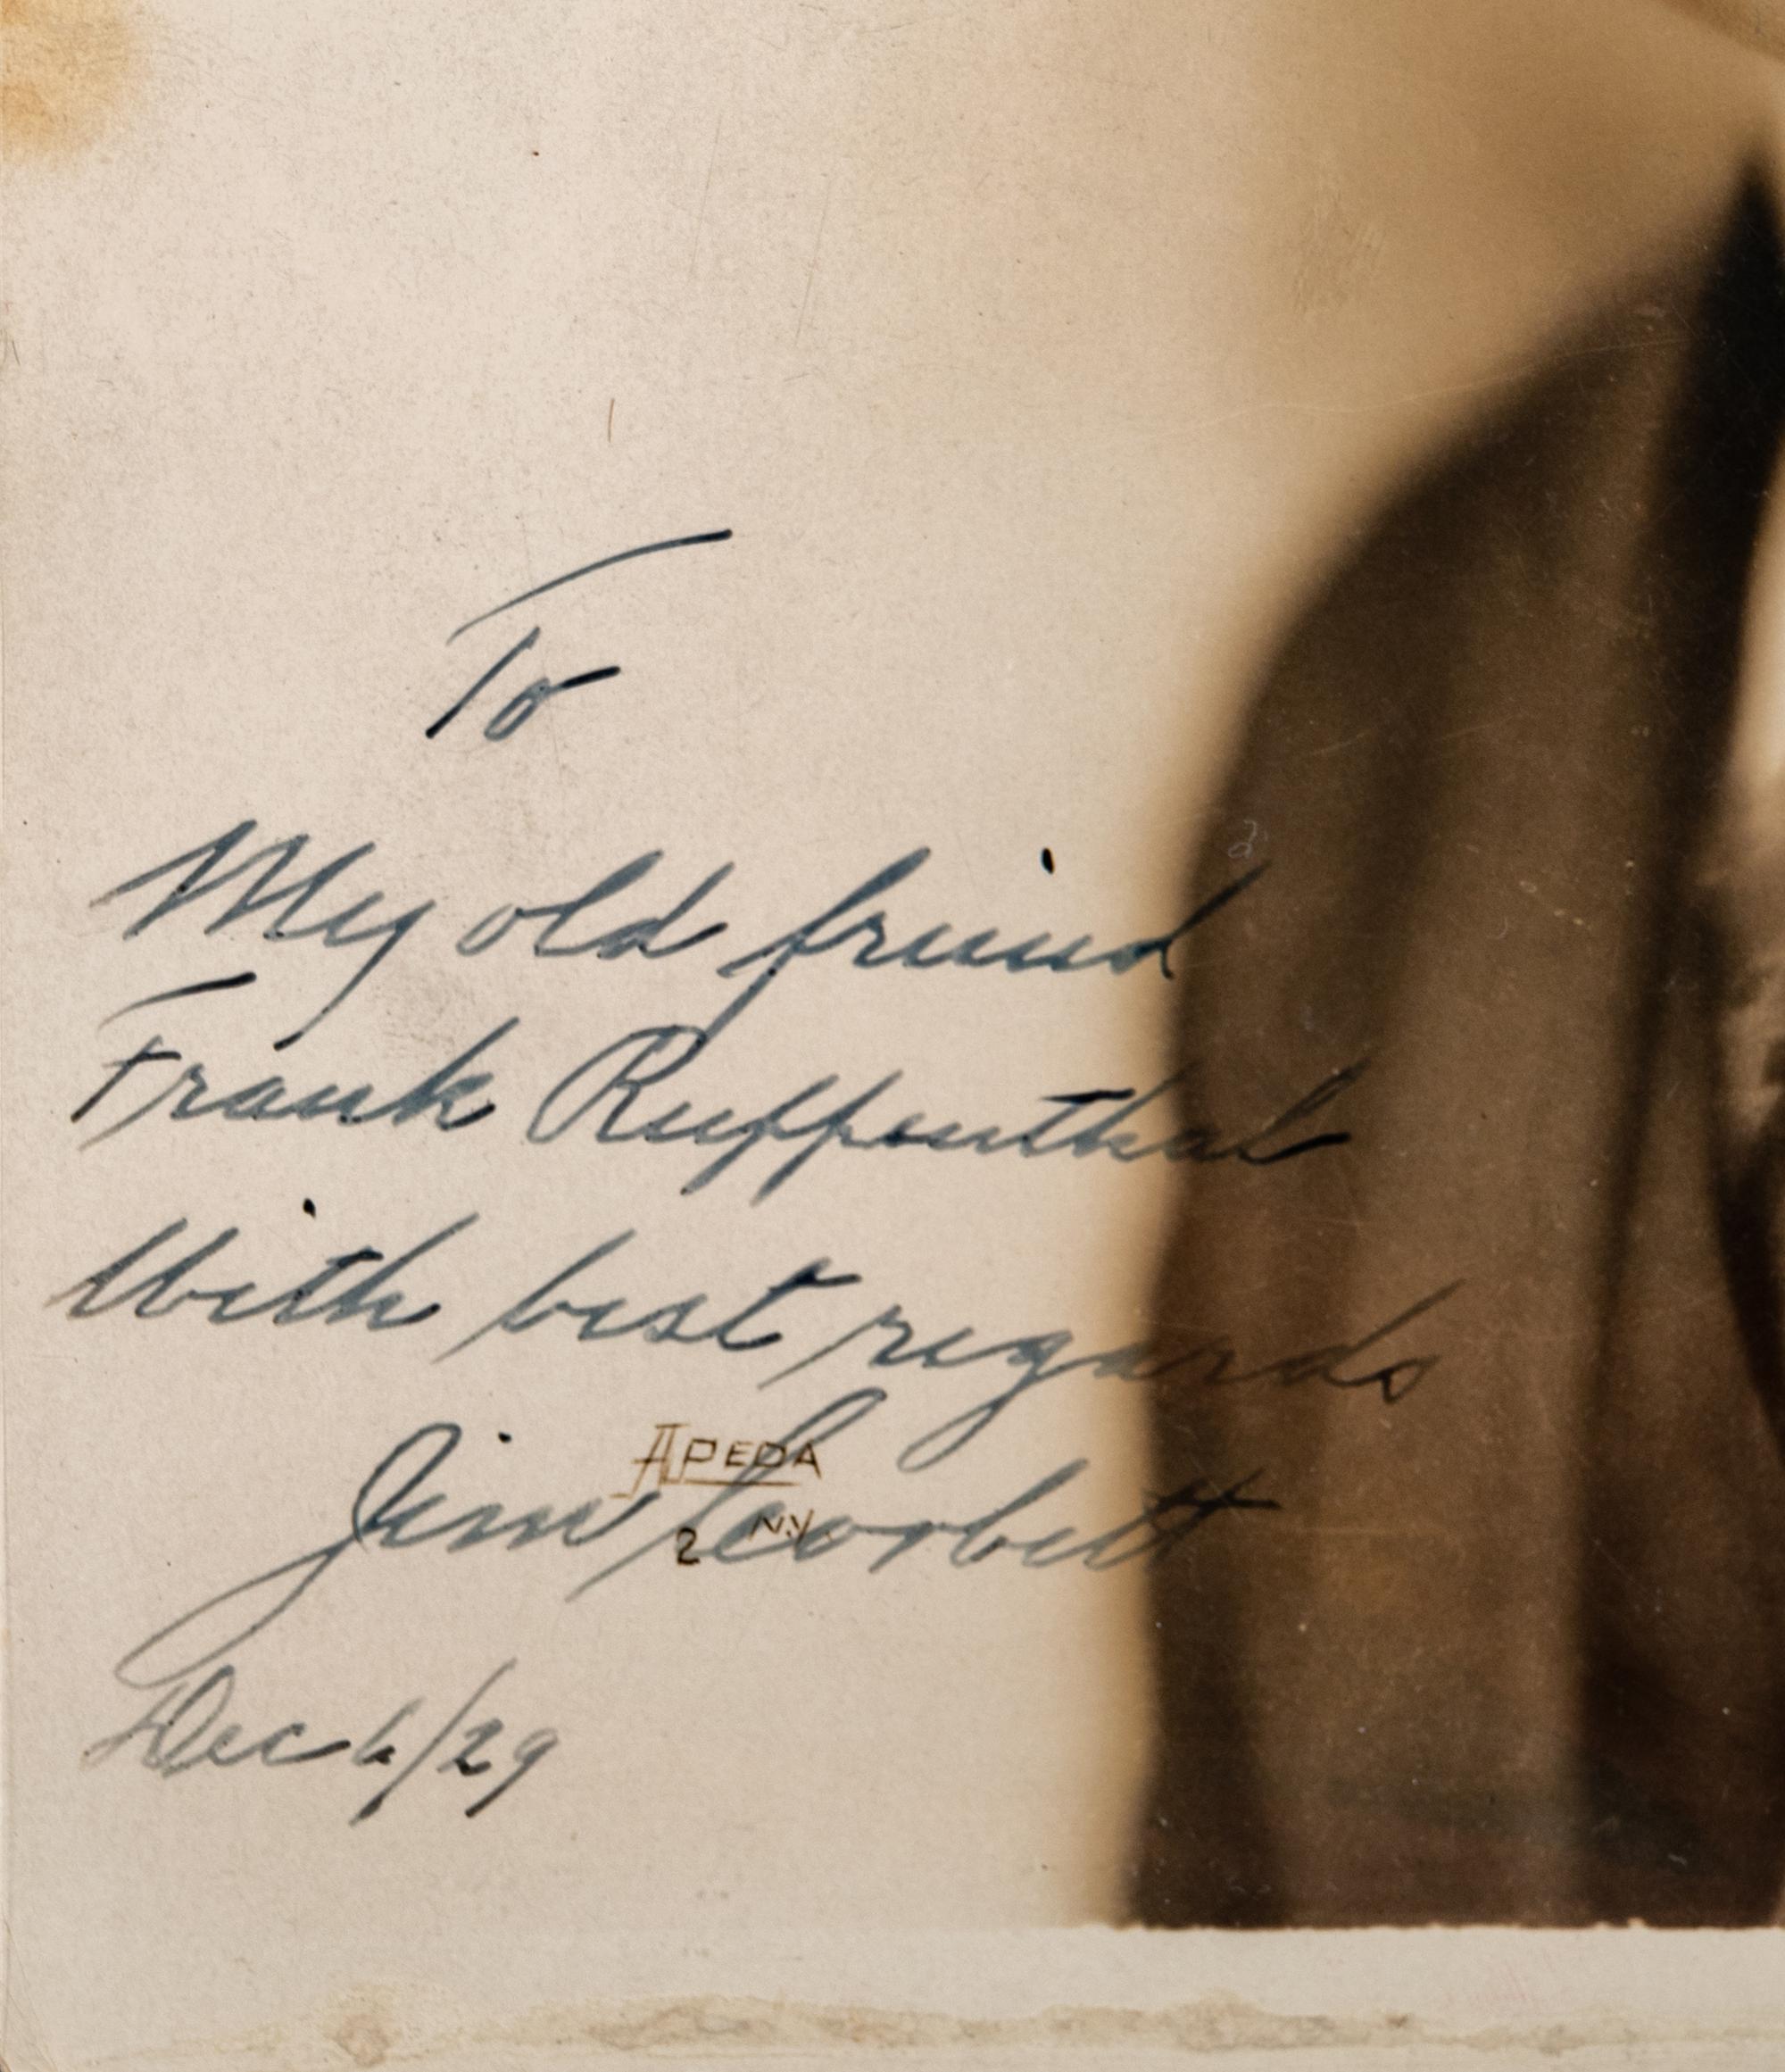 To
My old friend
Frank Ruppenthal
With best regards
APEDA
N.Y.
2
Jim Corbett
Dec 6/29